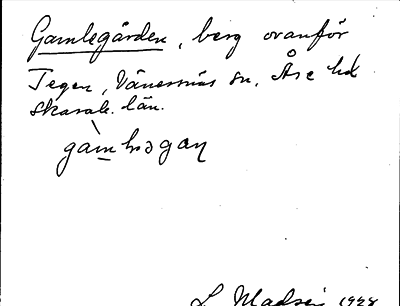 Gamlegården, berg ovanför
Tegen, Vänersnäs sn. Åse hd
Skarab. län.
gàmhɔgaɳ
L. Madsén 1928